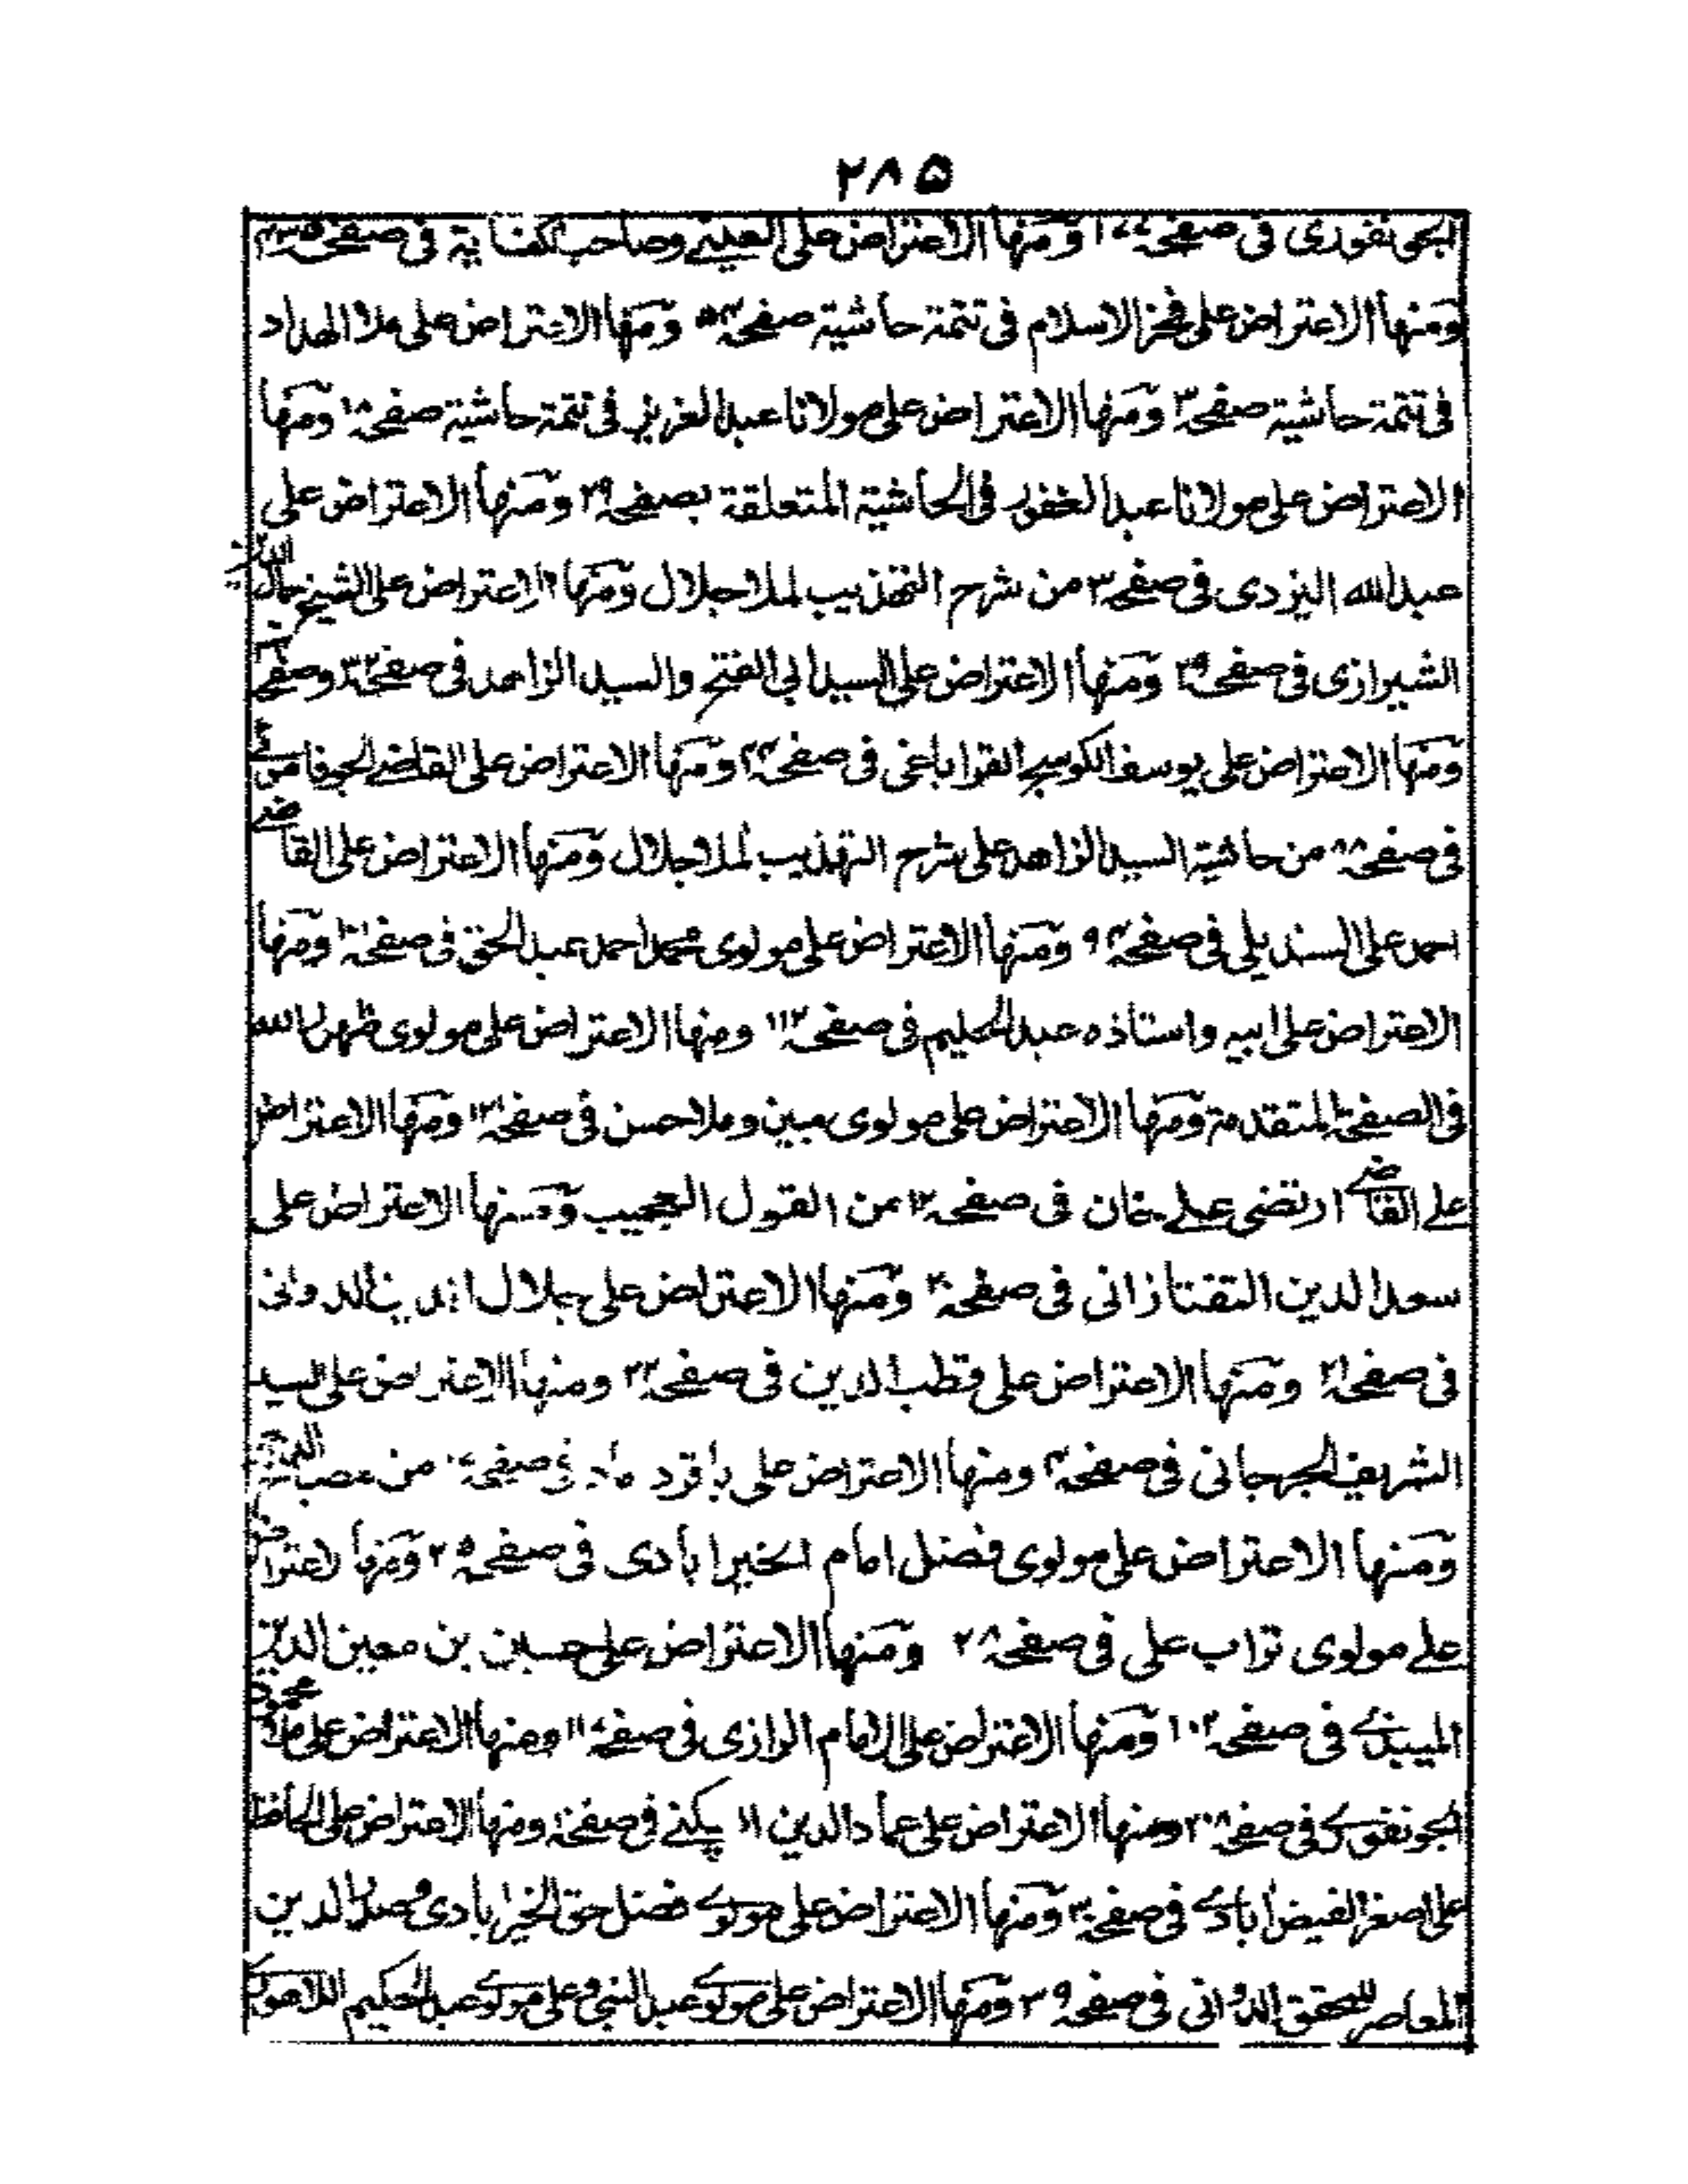 ٢٨٥
الجونفوري في صفحة ١٧٧ ومنها الاعتراض على العيني وصاحب الكفاية في صفحة
ومنها الاعتراض على فخر الاسلام في تتمة حاشية صفحة ٥٣ ومنها الاعتراض على ملا الهداد
في تتمة حاشية صفحة ٣ ومنها الاعتراض على مولانا عبد العزيز في تتمة حاشية صفحة ١٨ ومنها
الاعتراض على مولانا عبد الغفور في الحاشية المتعلقة بصفحة ٢٩ ومنها الاعتراض على
عبد الله اليزدى في صفحة ٣ من شرح التهذيب لملا جلال ومنها الاعتراض على الشيخ جمال الدين
الشيرازى في صفحة ٢٩ ومنها الاعتراض على السيد ابى الفتح والسيد الزاهد في صفحة ٣٢ وصفحة
ومنها الاعتراض على يوسف الكوسج القراباغى في صفحة ومنها الاعتراض على القاضى
في صفحة ٨٨ من حاشية السيد الزاهد على شرح التهذيب لملا جلال ومنها الاعتراض على القاضى
احمد على السنديلى في صفحة ٩٣ ومنها الاعتراض على مولوى محمد احمد عبد الحق في صفحة ومنها
الاعتراض على ابيه واستاذه عبد الحليم في صفحة ١١٢ ومنها الاعتراض على مولوى ظهور الله
في الصفحة المتقدمة ومنها الاعتراض على مولوى مبين وملا حسن في صفحة ومنها الاعتراض
على القاضى ارتضى على خان في صفحة ١٢ من القول العجيب ومنها الاعتراض على
سعد الدين التفتازانى في صفحة ٢٠ ومنها الاعتراض على جلال الدين الدوانى
في صفحة ٢١ ومنها الاعتراض على قطب الدين في صفحة ٢٢ ومنها الاعتراض على السيد
الشريف الجرجانى في صفحة ومنها الاعتراض على باقر داماد في صفحة من
ومنها الاعتراض على مولوى فضل امام الخيرابادى في صفحة ٢٥ ومنها الاعتراض
على مولوى تراب على في صفحة ٢٨ ومنها الاعتراض على حسين بن معين الدين
الميبذى في صفحة ١٠٢ ومنها الاعتراض على الامام الرازى في صفحة ومنها الاعتراض على ملا محمود
الجونفورى في صفحة ٢٠٨ ومنها الاعتراض على عماد الدين اللبكنى في صفحة ومنها الاعتراض على الحافظ
على اصغر الفيض ابادى في صفحة ٣٠ ومنها الاعتراض على مولوى فضل حق الخيرابادى وصدر الدين
المعاصر للمحقق الدوانى في صفحة ٣٩ ومنها الاعتراض على مولوى عبد النبى وعلى مولوى عبد الحكيم اللاهورى